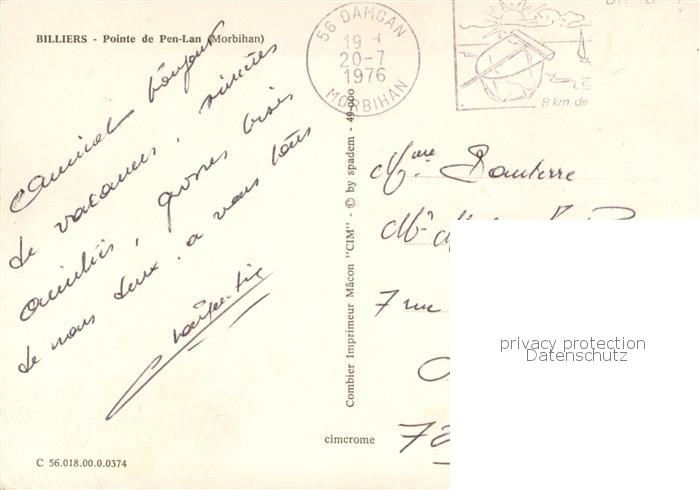 BILLIERS - Pointe de Pen-Lan (Morbihan)
Amical bonjour
de vacances, sincères
amitiés, grosses bises
de nous deux. a vous tous
56 DAMGAN
19 -
20-7
1976
MORBIHAN
8 km. de
Combier Imprimeur Mâcon "CIM" - © by spadem - 49-000
Mme
7 rue
privacy protection
Datenschutz
cimcrome
C 56.018.00.0.0374